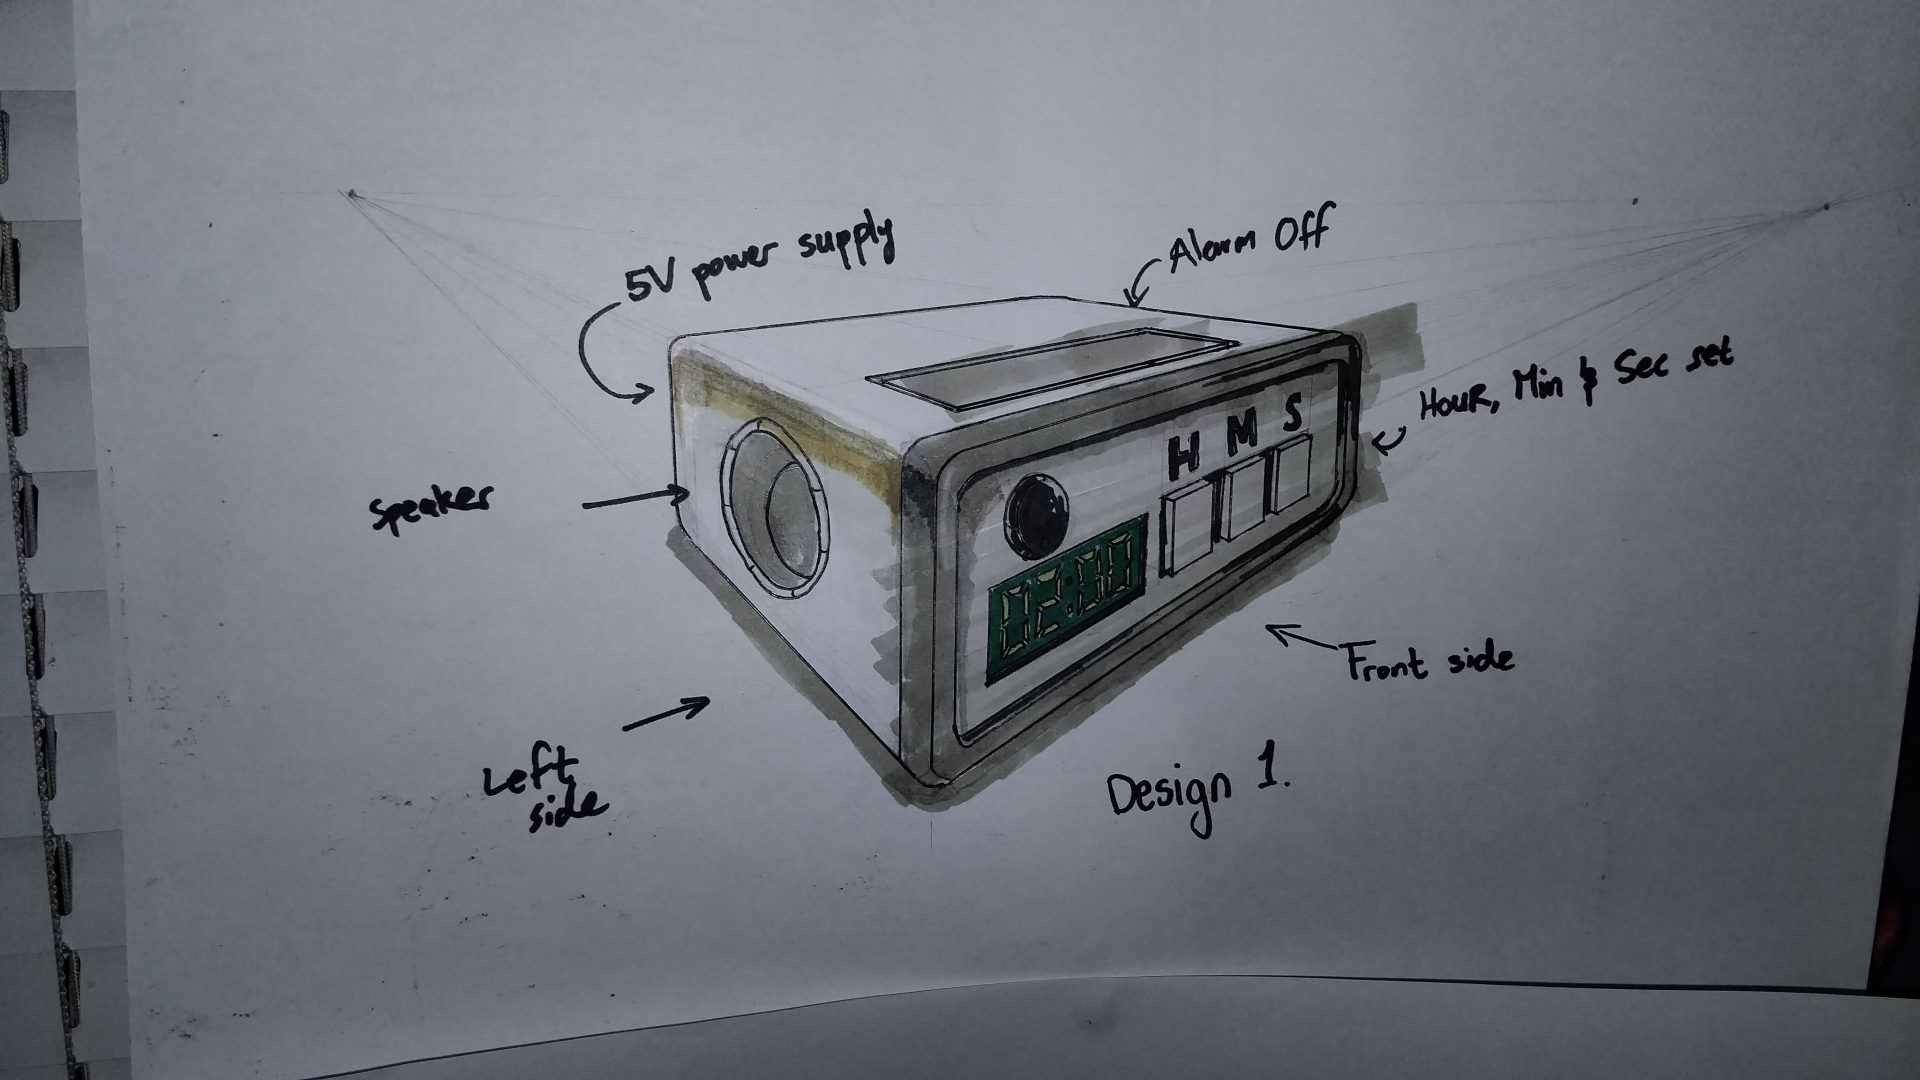 5V power supply
Alarm Off
Hour, Min & Sec set
H M S
Speaker
02:00
Front side
Left
side
Design 1.